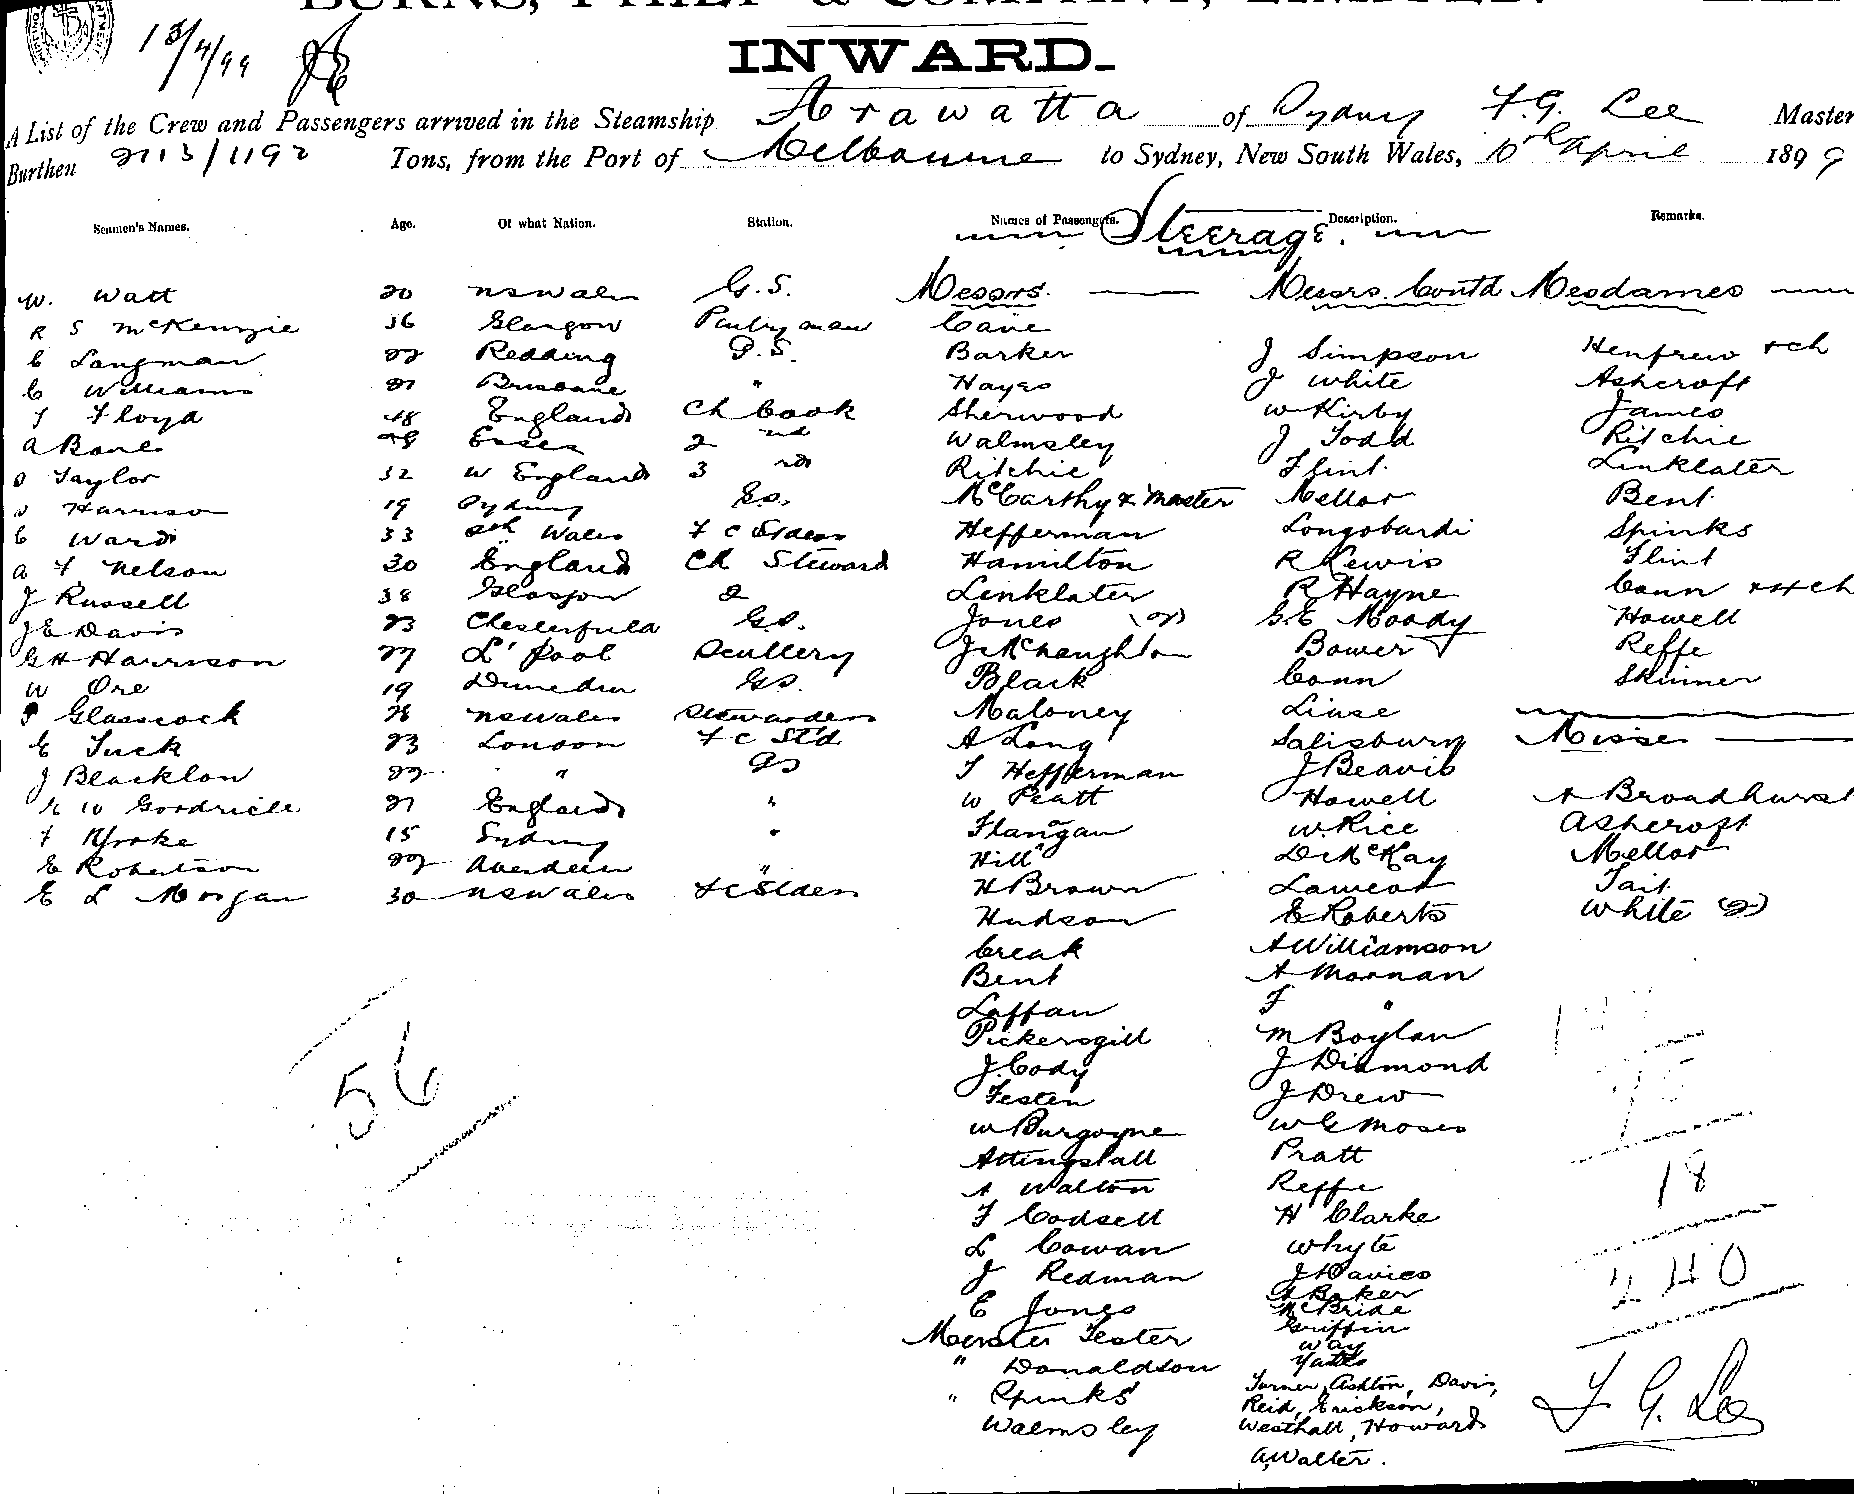 BURNS, PHILP & COMPANY, LIMITED.
13/4/99
INWARD.
A List of the Crew and Passengers arrived in the Steamship Arawatta of Sydney F.G. Lee Master
Burthen 2113/1192 Tons, from the Port of Melbourne to Sydney, New South Wales, 10th April 1899
Seamen's Names. Age. Of what Nation. Station. Names of Passengers. Steerage. Description. Remarks.
W. Watt 20 NSWales G.S. Messrs. Messrs. Contd Mesdames
R S McKenzie 36 Glasgow Pantryman Cave
C Langman 22 Redding G.S. Barker J Simpson Henfrew + ch
C Williams 21 Brisbane " Hayes J White Ashcroft
T Floyd 48 England Ch Cook Sherwood W Kirby James
A Bone 28 Essex 2nd Walmsley J Todd Ritchie
Taylor 32 W England 3rd Ritchie Flint Linklater
Harrison 19 Sydney G.S. McCarthy & Master Mellor Bent
C Ward 33 Sth Wales F C Stdess Hefferman Longobardi Spinks
A F Nelson 30 England Ch Steward Hamilton R Lewis Flint
J Russell 38 Glasgow 2 Linklater R Hayne Conn + ch
J E Davis 23 Chesterfield G.S. Jones (2) G E Moody Howell
G H Harrison 27 L'pool Scullery J McNaughton Bower Reffe
W Ore 19 Dunedin G.S. Black Conn Skinner
P Glasscock 28 NSWales Stewardess Maloney Linse
E Tuck 23 London F C Std A Long Salisbury Misses
J Blacklon 22 " GS T Hefferman J Beavis
W Goodriele 21 England " W Peatt Howell A Broadhurst
F Yorke 15 Sydney " Flanagan W. Rice Ashcroft
E Robertson 22 Aberdeen " Hill D McKay Mellor
E L Morgan 30 NSWales F C Stdess H Brown Tait
Hudson E Roberts White (2)
Creak A Williamson
Bent A Moonan
Laffan F "
Pickersgill M Boylan
J. Cody J Diamond
Festen J Drew
W Burgoyne W C Moses
56
Attingstall Pratt
A Walton Reffe 18
T Godsell H Clarke
L Cowan Whyte
J Redman J Davies 240
A Baker
E Jones McBride
Master Tester Griffin
Way
" Donaldson Yates
" Spinks Turner, Ashton, Davis,
Reid, Erickson,
Walmsley Westhall, Howard
A. Walter.
F G. Lee